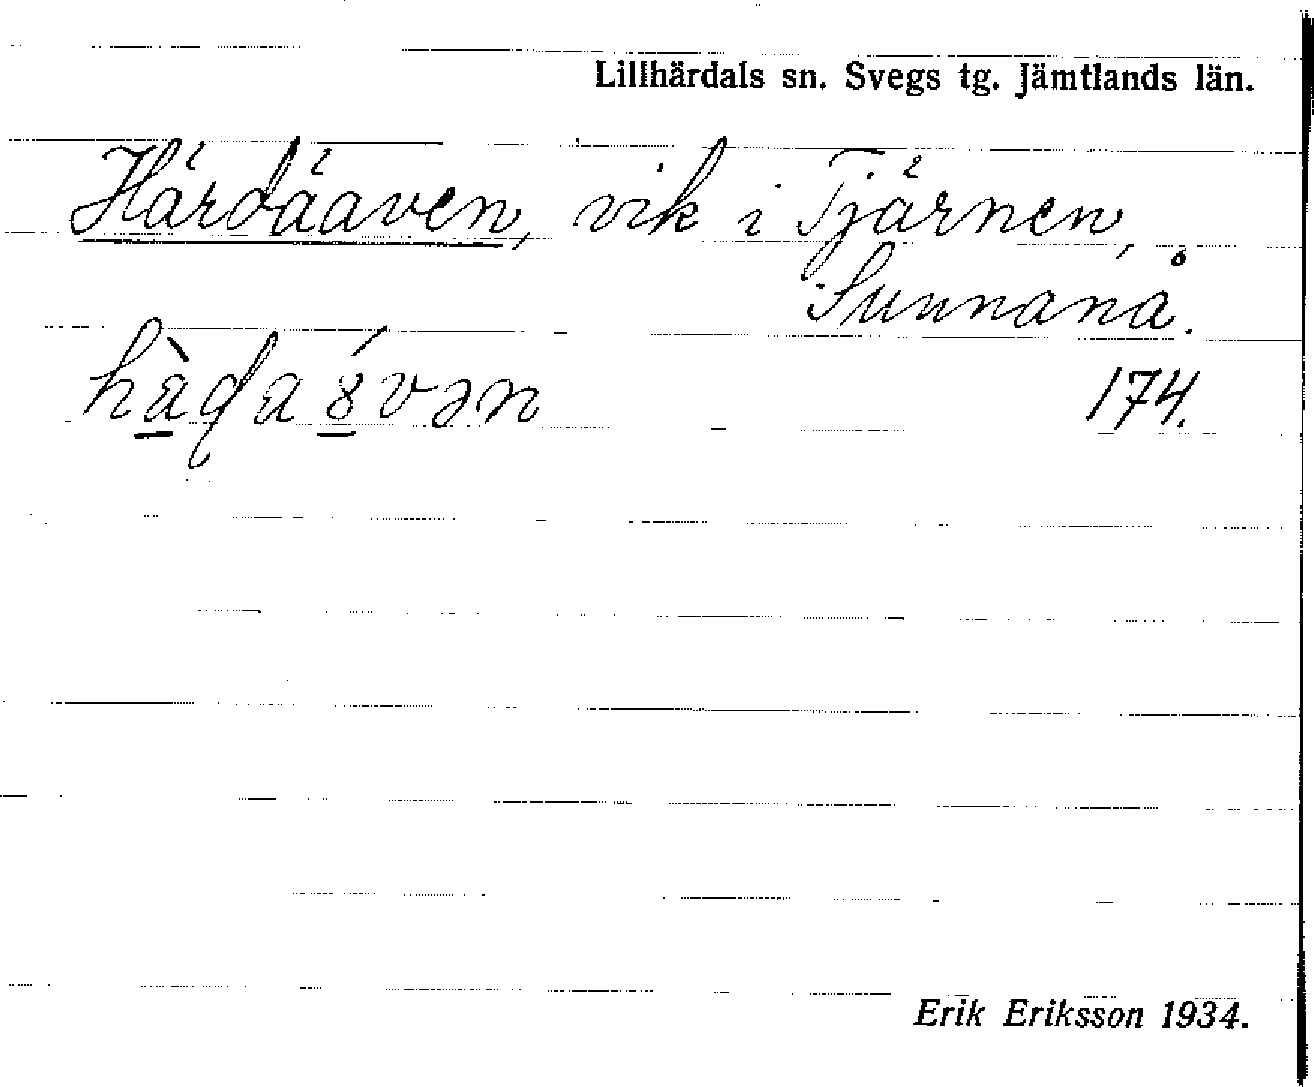 Lillhärdals sn. Svegs tg. Jämtlands län.
Härdäaven, vik i Tjärnen,
Sunnanå.
174.
Erik Eriksson 1934.